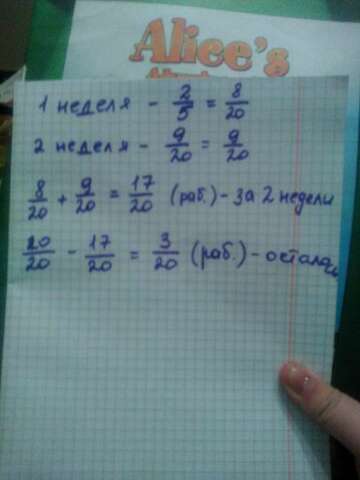 Alice's
1 неделя - 2/5 = 8/20
2 неделя - 9/20 = 9/20
8/20 + 9/20 = 17/20 (раб.) - за 2 недели
20/20 - 17/20 = 3/20 (раб.) - осталась